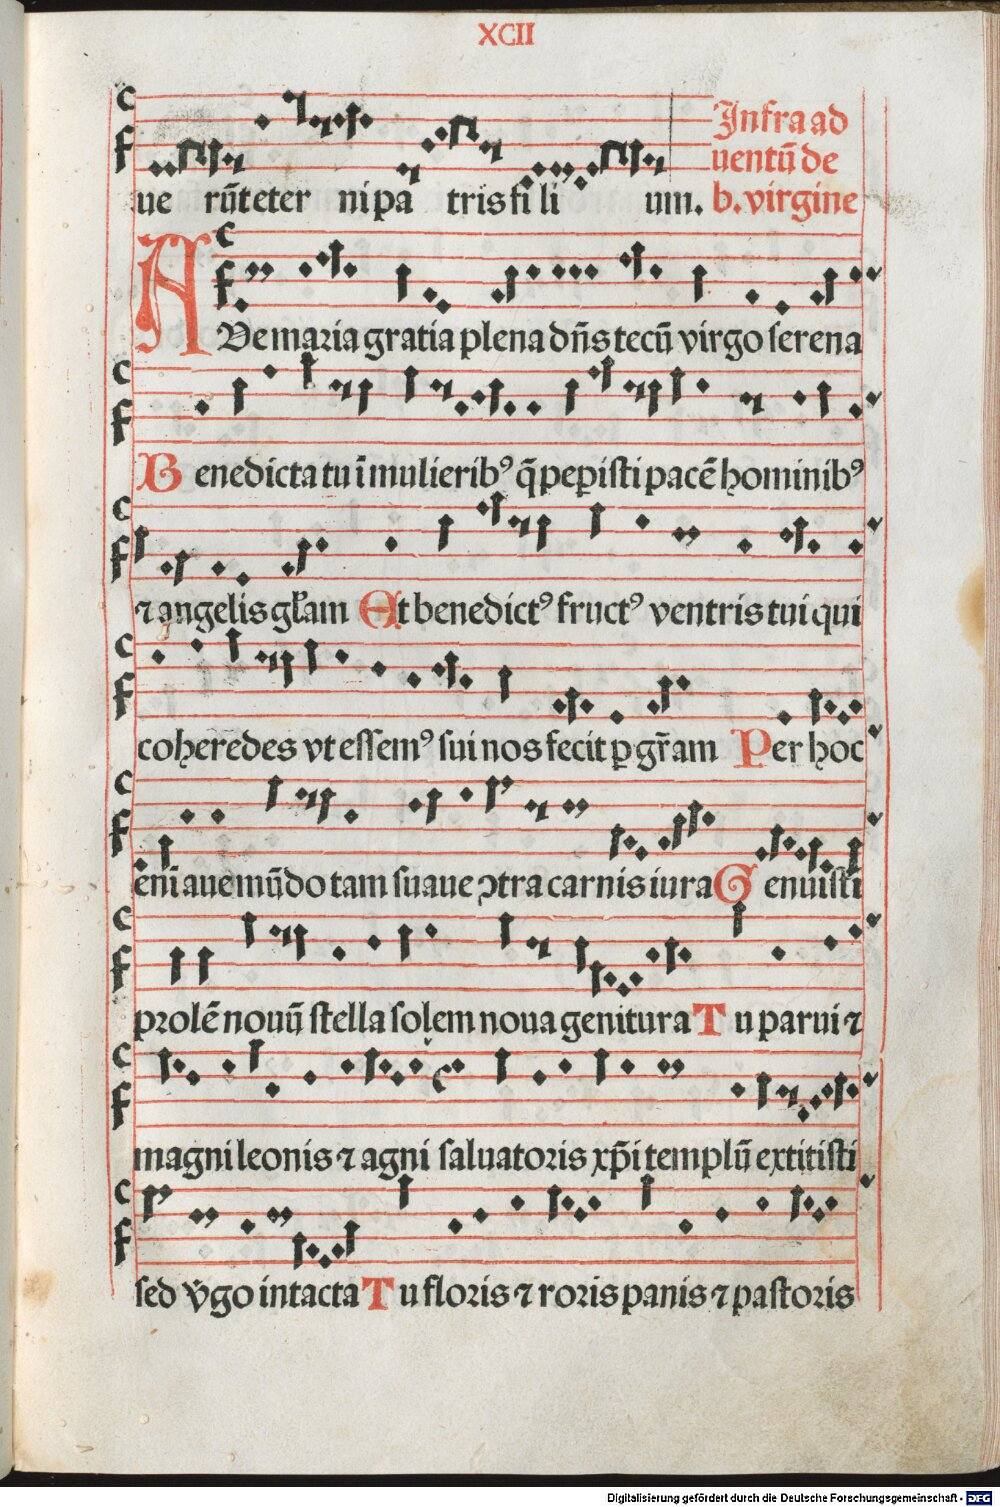 XCII
ue rūt eter ni pa tris fi li um.
Infra ad
uentū de
b. virgine
AVe maria gratia plena dn̄s tecū virgo serena
Benedicta tu ī mulieribꝰ q̄ peꝑisti pacē hominibꝰ
⁊ angelis gl̄am Et benedictꝰ fructꝰ ventris tui qui
coheredes vt essemꝰ sui nos fecit ꝑ gr̄am Per hoc
enī aue mūdo tam suaue ↄtra carnis iura Genuisti
prolē nouū stella solem noua genitura Tu parui ⁊
magni leonis ⁊ agni saluatoris xp̄i templū extitisti
sed v̄go intacta Tu floris ⁊ roris panis ⁊ pastoris
Digitalisierung gefördert durch die Deutsche Forschungsgemeinschaft - DFG